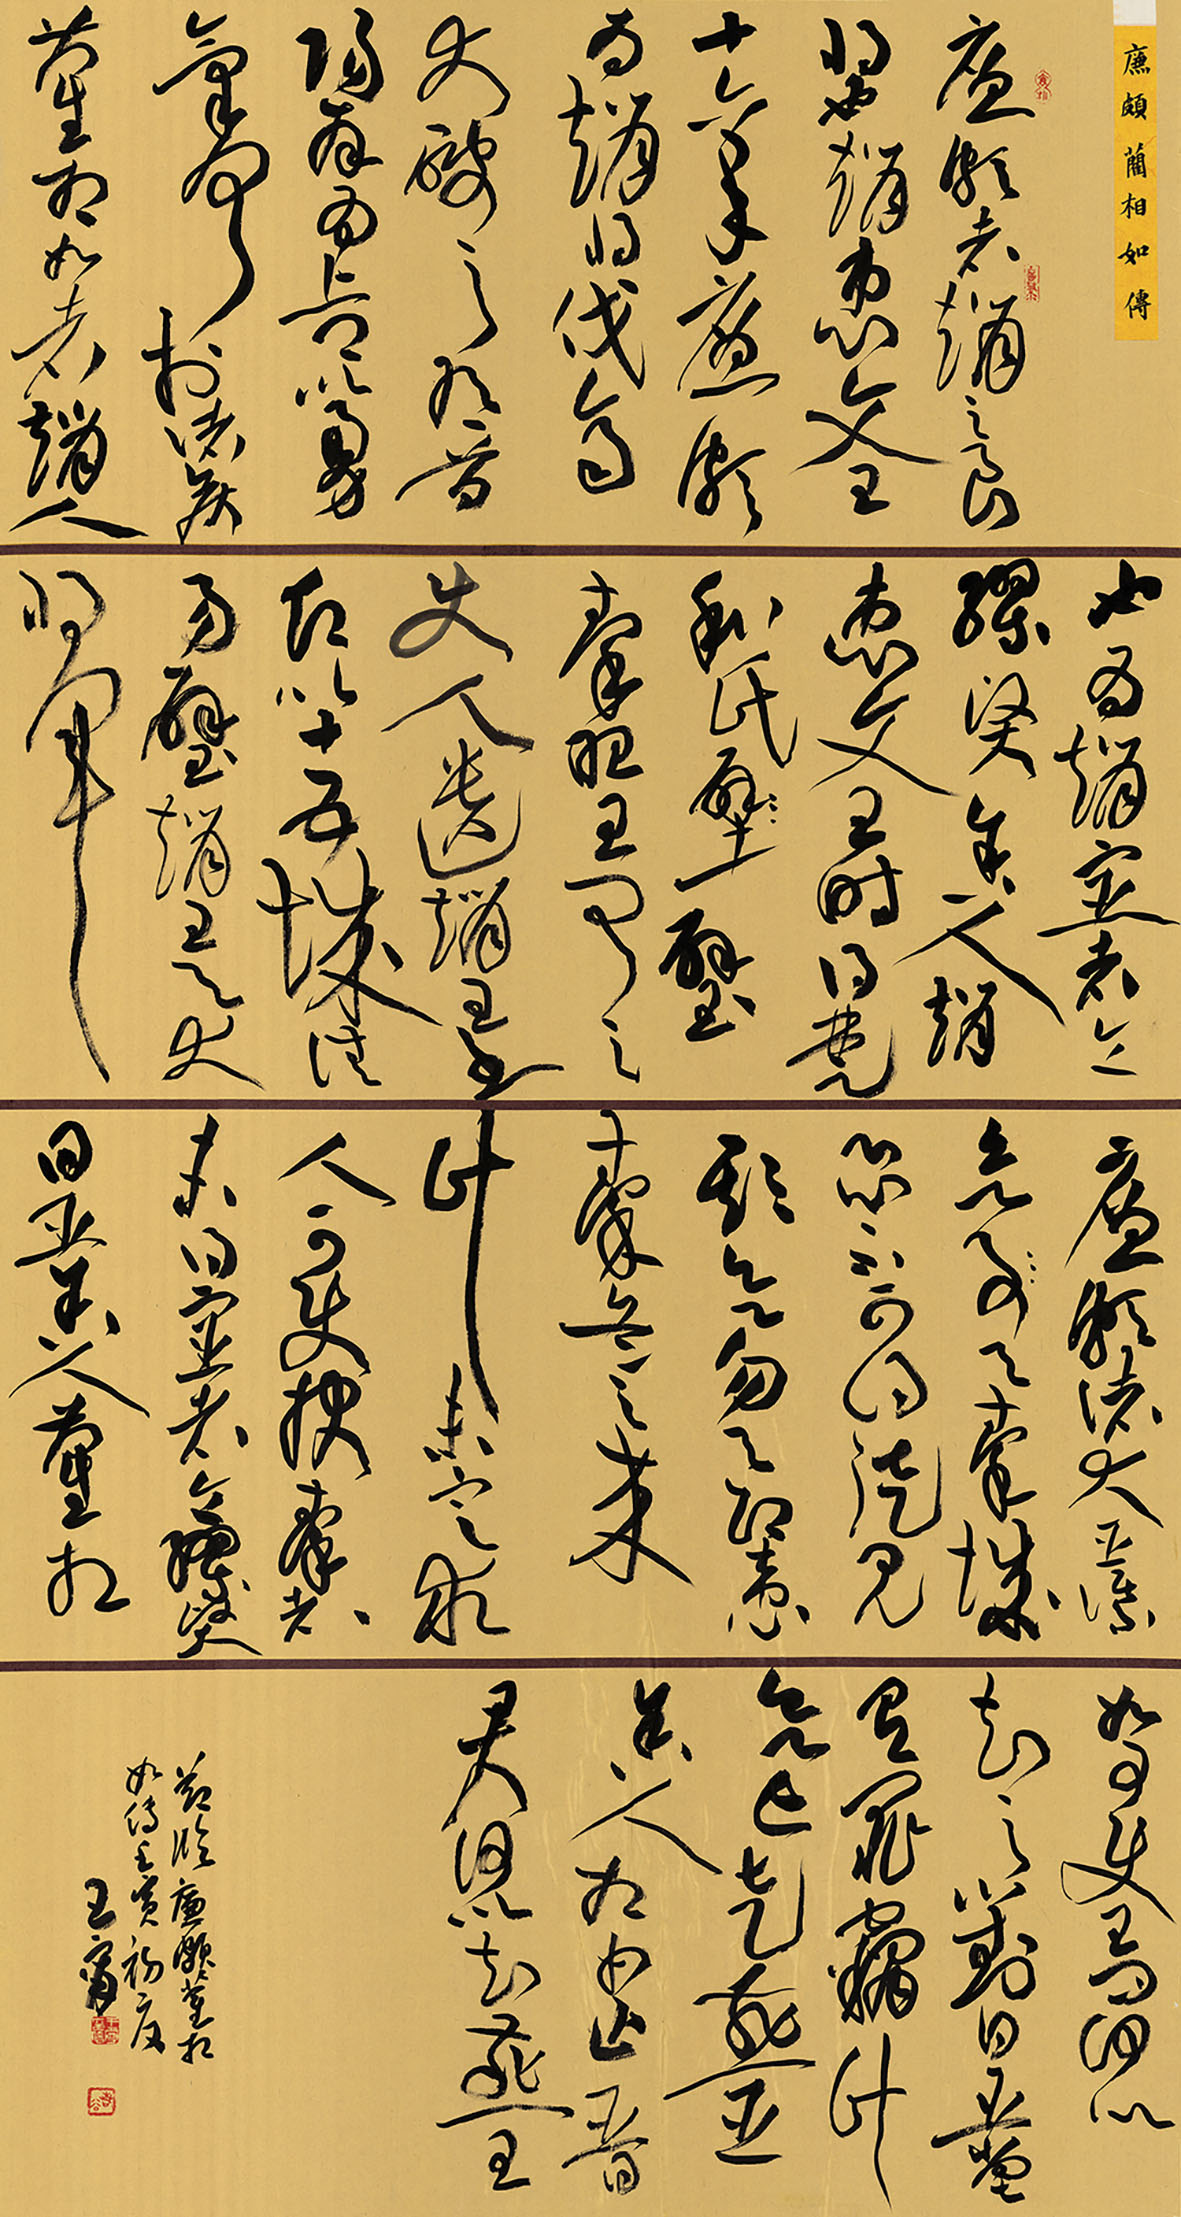 廉頗藺相如傳
廉頗者趙之良
將也趙惠文王
十六年廉頗
為趙將伐齊
大破之取晉
陽拜為上卿以勇
氣聞於諸侯
藺相如者趙人
也為趙宦者令
繆賢舍人趙
惠文王時得楚
和氏璧璧
秦昭王聞之
使人遺趙王書
願以十五城請
易璧趙王與大
將軍
廉頗諸大臣謀
欲予與秦城
恐不可得徒見
欺欲勿與即患
秦兵之來
計未定求
人可使報秦者
未得宦者令繆賢
曰臣舍人藺相
如可使王問何以
知之對曰臣嘗
有罪竊計
欲亡走燕臣
舍人相如止臣曰
君何以知燕王
節臨廉頗藺相
如傳壬寅初夏
王